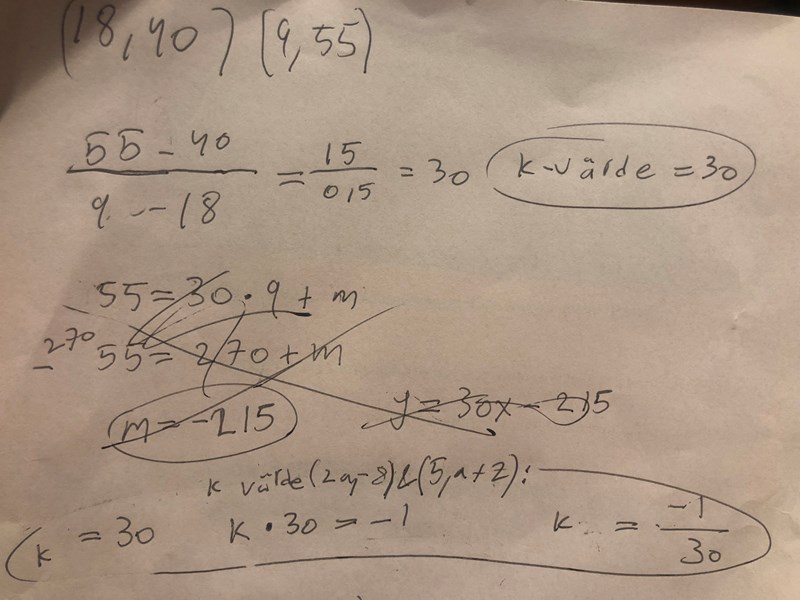 (18,40) (9,55)
55-40
9--18
= 15
0,5
= 30
k-värde = 30
55 = 30·9 + m
-270 55 = 270 + m
m = -215
y = 30x - 215
k värde (2a,-8) & (5,a+2):
k = 30 k·30 = -1 k = -1
30